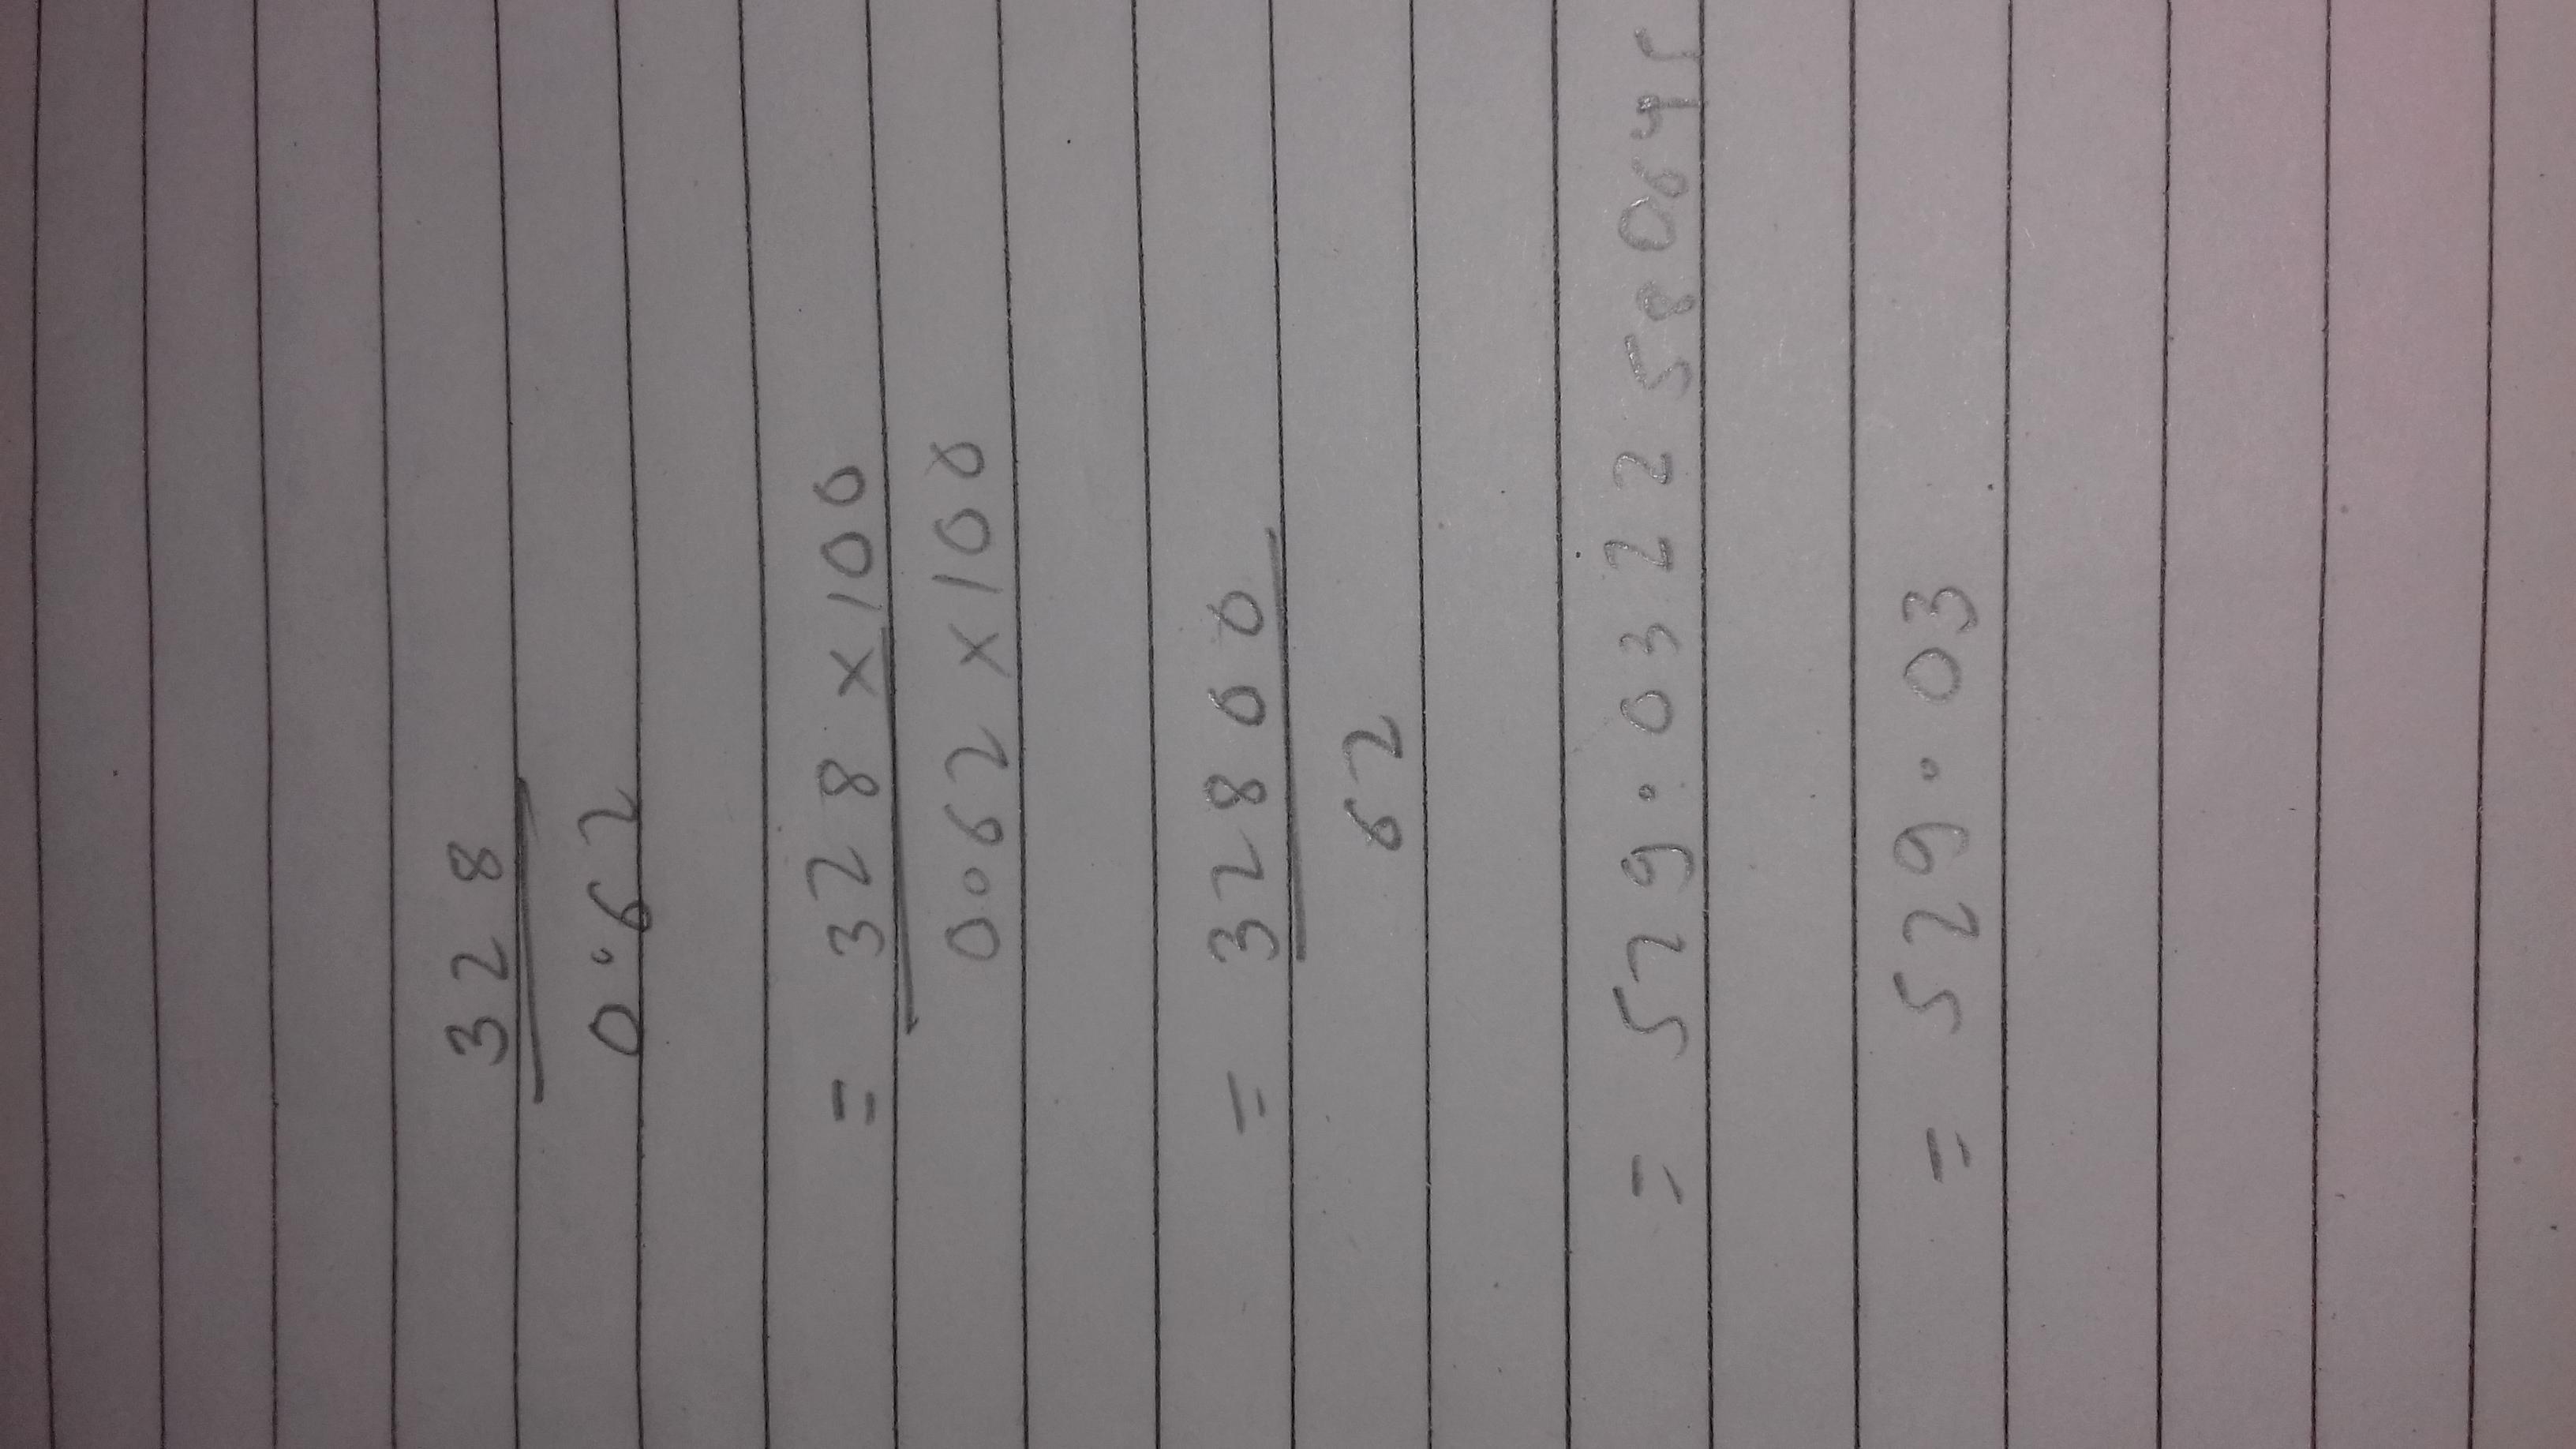 328
0.62
= 328 × 100
0.62 × 100
= 32800
62
= 529.0322580645
= 529.03